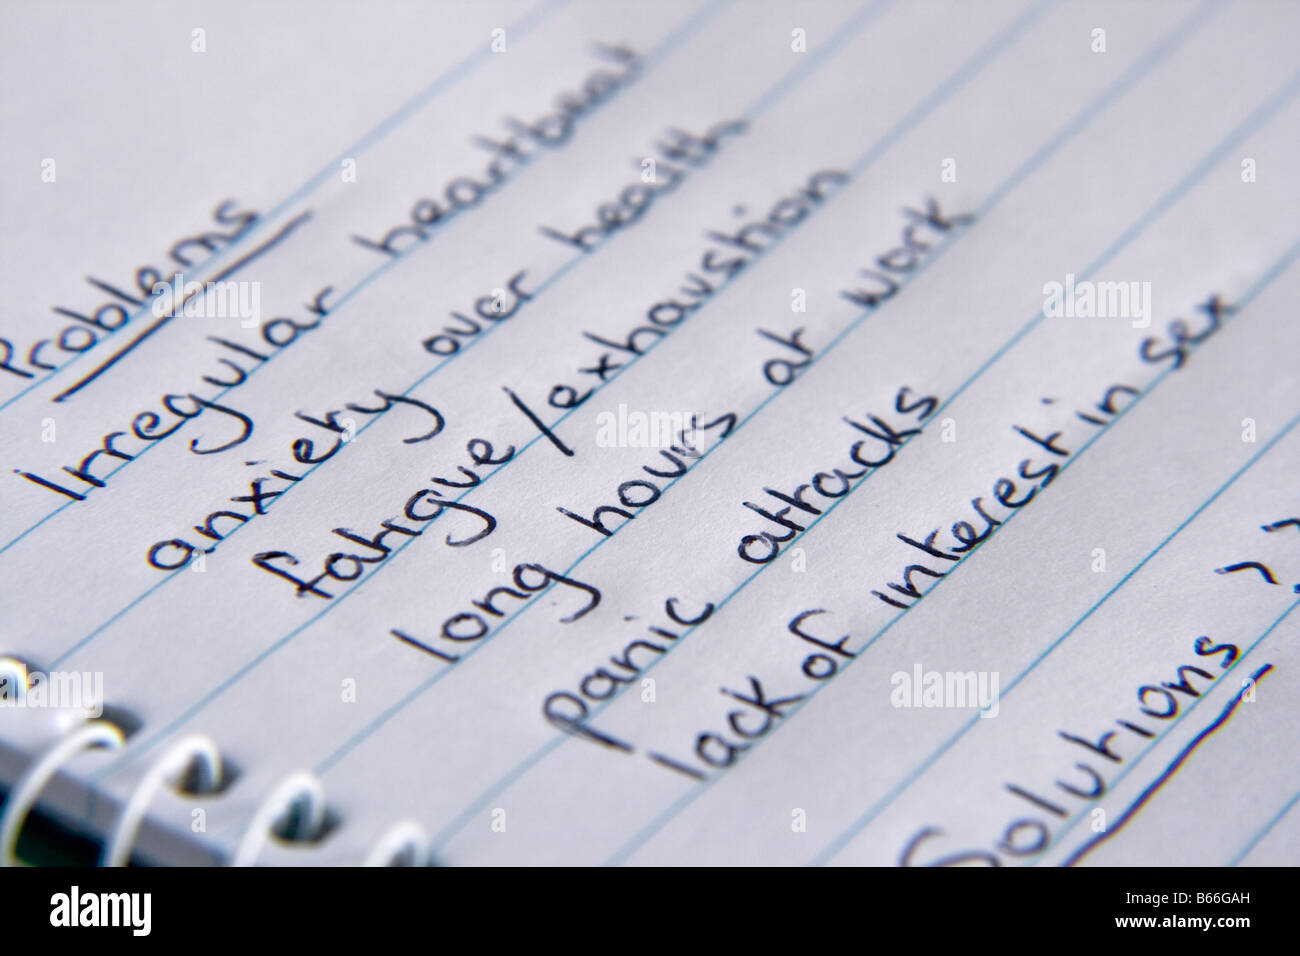 Problems
Irregular heartbeat
anxiety over health
fatigue/exhaustion
long hours at work
panic attacks
lack of interest in sex
Solutions ??
a
alamy
alamy
alamy
alamy
Image ID: B66GAH
www.alamy.com